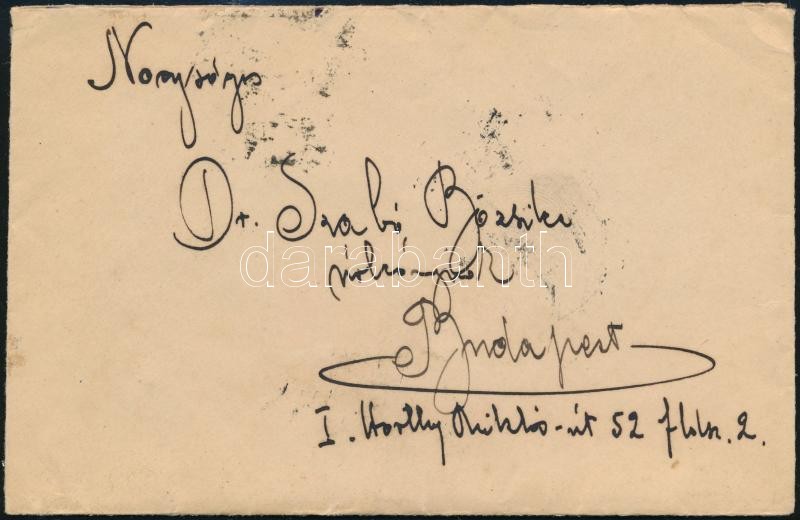 Nagyságos
Dr. Szabó Rózsika
úrhölgynek
Budapest
I. Horthy Miklós-út 52 fldsz. 2.
darabanth